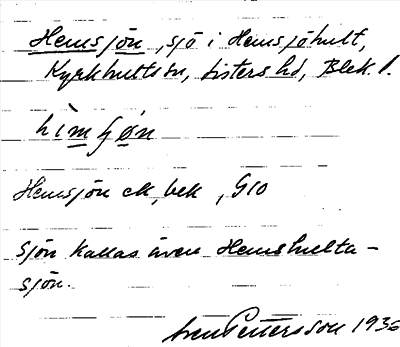 Hemsjön, sjö i Hemsjöhult,
Kyrkhults sn, Listers hd, Blek. l.
hìmʃøn
Hemsjön ek, bek, G10
Sjön kallas även Hemshulta-
sjön.
Sven Pettersson 1936